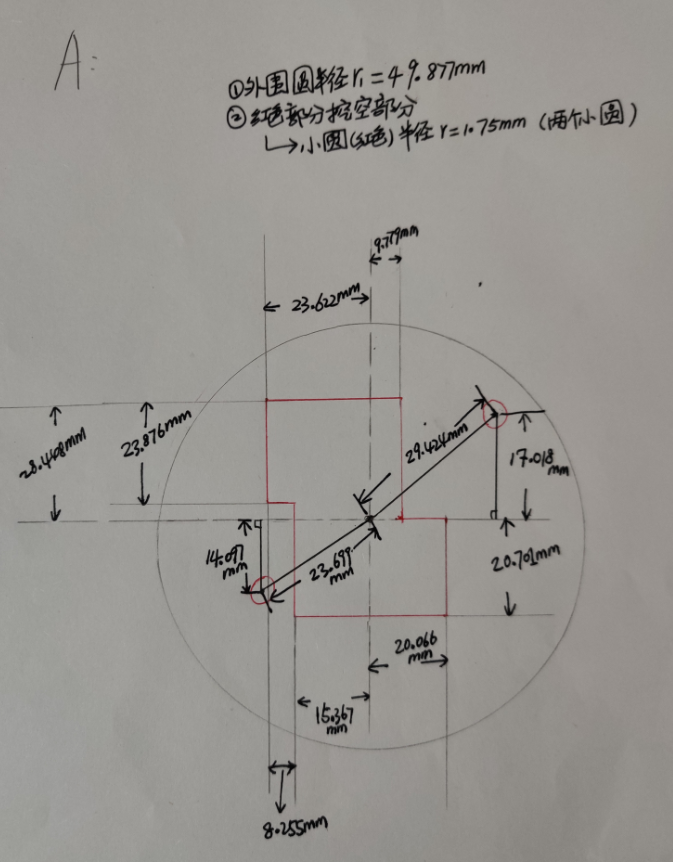 A:
①外围圆半径r₁=49.877mm
②红色部分挖空部分
↳小圆(红色)半径r=1.75mm(两个小圆)
9.779mm
23.622mm
28.448mm
23.876mm
29.424mm
17.018
mm
14.097
mm
23.699
mm
20.701mm
20.066
mm
15.367
mm
8.255mm